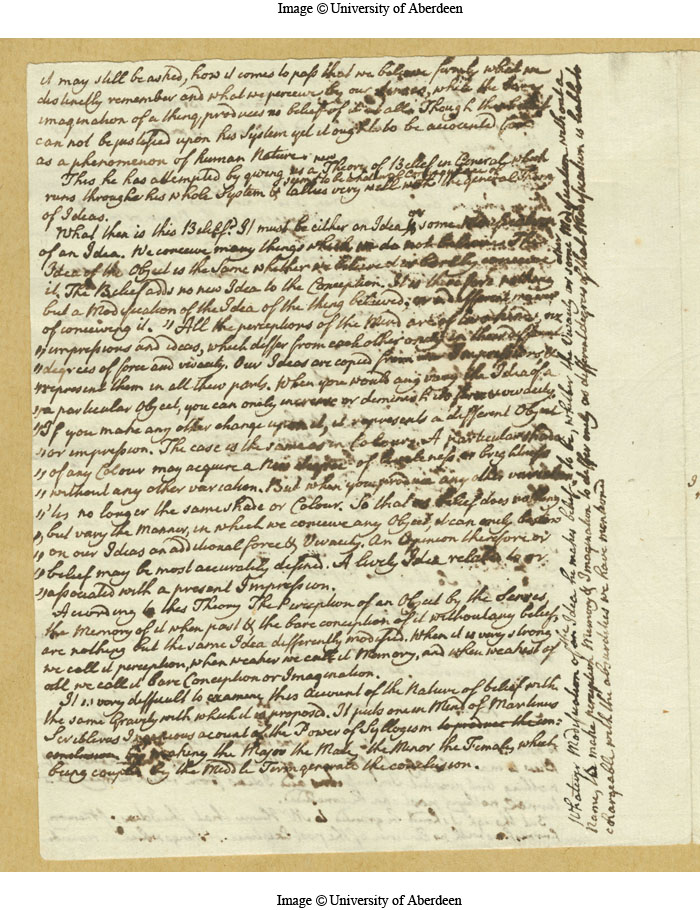 Image © University of Aberdeen
it may still be asked, how it comes to pass that we believe firmly what we
distinctly remember and what we perceive by our senses, while the bare
imagination of a thing, produces no belief of it at all. Though the belief
can not be justified upon his System yet it ought to be accounted for
as a phenomenon of human Nature.
This he has attempted by giving us a new Theory of Belief in General which
runs through his whole System & tallies very well with the General Theory
of Ideas.
What then is this Belief? It must be either an Idea or some Modification
of an Idea. We conceive many things which we do not believe. The
Idea of the Object is the Same whether we believe it or barely conceive
it. The Belief adds no new Idea to the Conception. It is therefore nothing
but a Modification of the Idea of the thing believed; or a different manner
of conceiving it. "All the perceptions of the Mind are of two kinds, viz
"impressions and ideas, which differ from each other only in their different
"degrees of force and vivacity. Our Ideas are copied from our Impressions &
"represent them in all their parts. When you would any vary the Idea of a
"a particular Object, you can only increase or deminish its force or vivacity.
"If you make any other change upon it, it represents a different Object
"or impression. The case is the same as in Colours. A particular shade
"of any Colour may acquire a New degree of liveleness or brightness
"without any other variation. But when you produce any other variation
"'tis no longer the same shade or Colour. So that as belief does nothing
"but vary the Manner, in which we conceive any Object, it can only bestow
"on our Ideas an additional force & Vivacity. An Opinion therefore or
"belief may be most accurately defined. A lively Idea related to or
"associated with a present Impression.
According to this Theory The Perception of an Object by the Senses,
the Memory of it when past & the bare conception of it without any belief,
are nothing but the same Idea differently modified. When it is very strong
we call it perception, when weaker we call it Memory, and when weakest of
all we call it bare Conception or Imagination.
It is very difficult to examine this Account of the Nature of belief with
the same Gravity with which it is proposed. It puts one in Mind of Martinus
Scriblerus Ingenious acount of the Power of Syllogism to produce the con-
conclusion by making the Major the Male the Minor the Female, which
being coupled by the Middle Term generate the conclusion.
Whatever Modification of the Idea he makes belief to be, whether its Vivacity or some Modification without a
Name, to make perception Memory & Imagination to differ only as different degrees of that Modification is liable to
chargeable with the absurdities we have mentioned
Image © University of Aberdeen